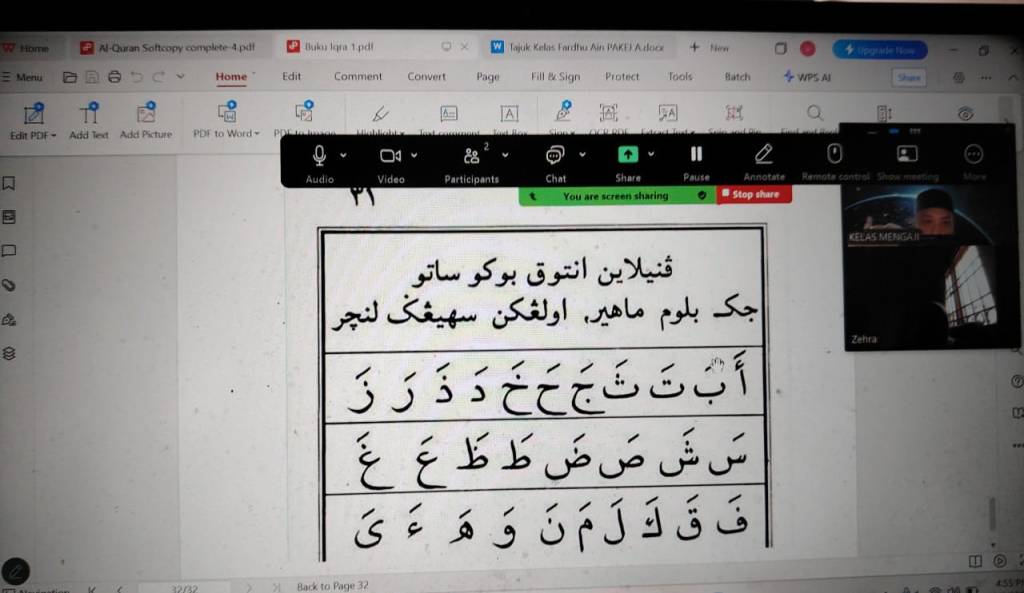 Home Al-Quran Softcopy complete-4.pdf Buku Iqra 1.pdf Tajuk Kelas Fardhu Ain PAKEJ A.docx + New Upgrade Now
Menu Home Edit Comment Convert Page Fill & Sign Protect Tools Batch WPS AI Share
Edit PDF Add Text Add Picture PDF to Word PDF to Image
Audio Video Participants 2 Chat Share Pause Annotate Remote control Show meeting More
٣١
You are screen sharing Stop share
KELAS MENGAJI
Zehra
ڤنيلاين انتوق بوكو ساتو
جك بلوم ماهير، اولڠكن سهيڠݢ لنچر
أَ بَ تَ ثَ جَ حَ خَ دَ ذَ رَ زَ
سَ شَ صَ ضَ طَ ظَ عَ غَ
فَ قَ كَ لَ مَ نَ وَ هَ ءَ يَ
Navigation 32/32 Back to Page 32
4:55 P